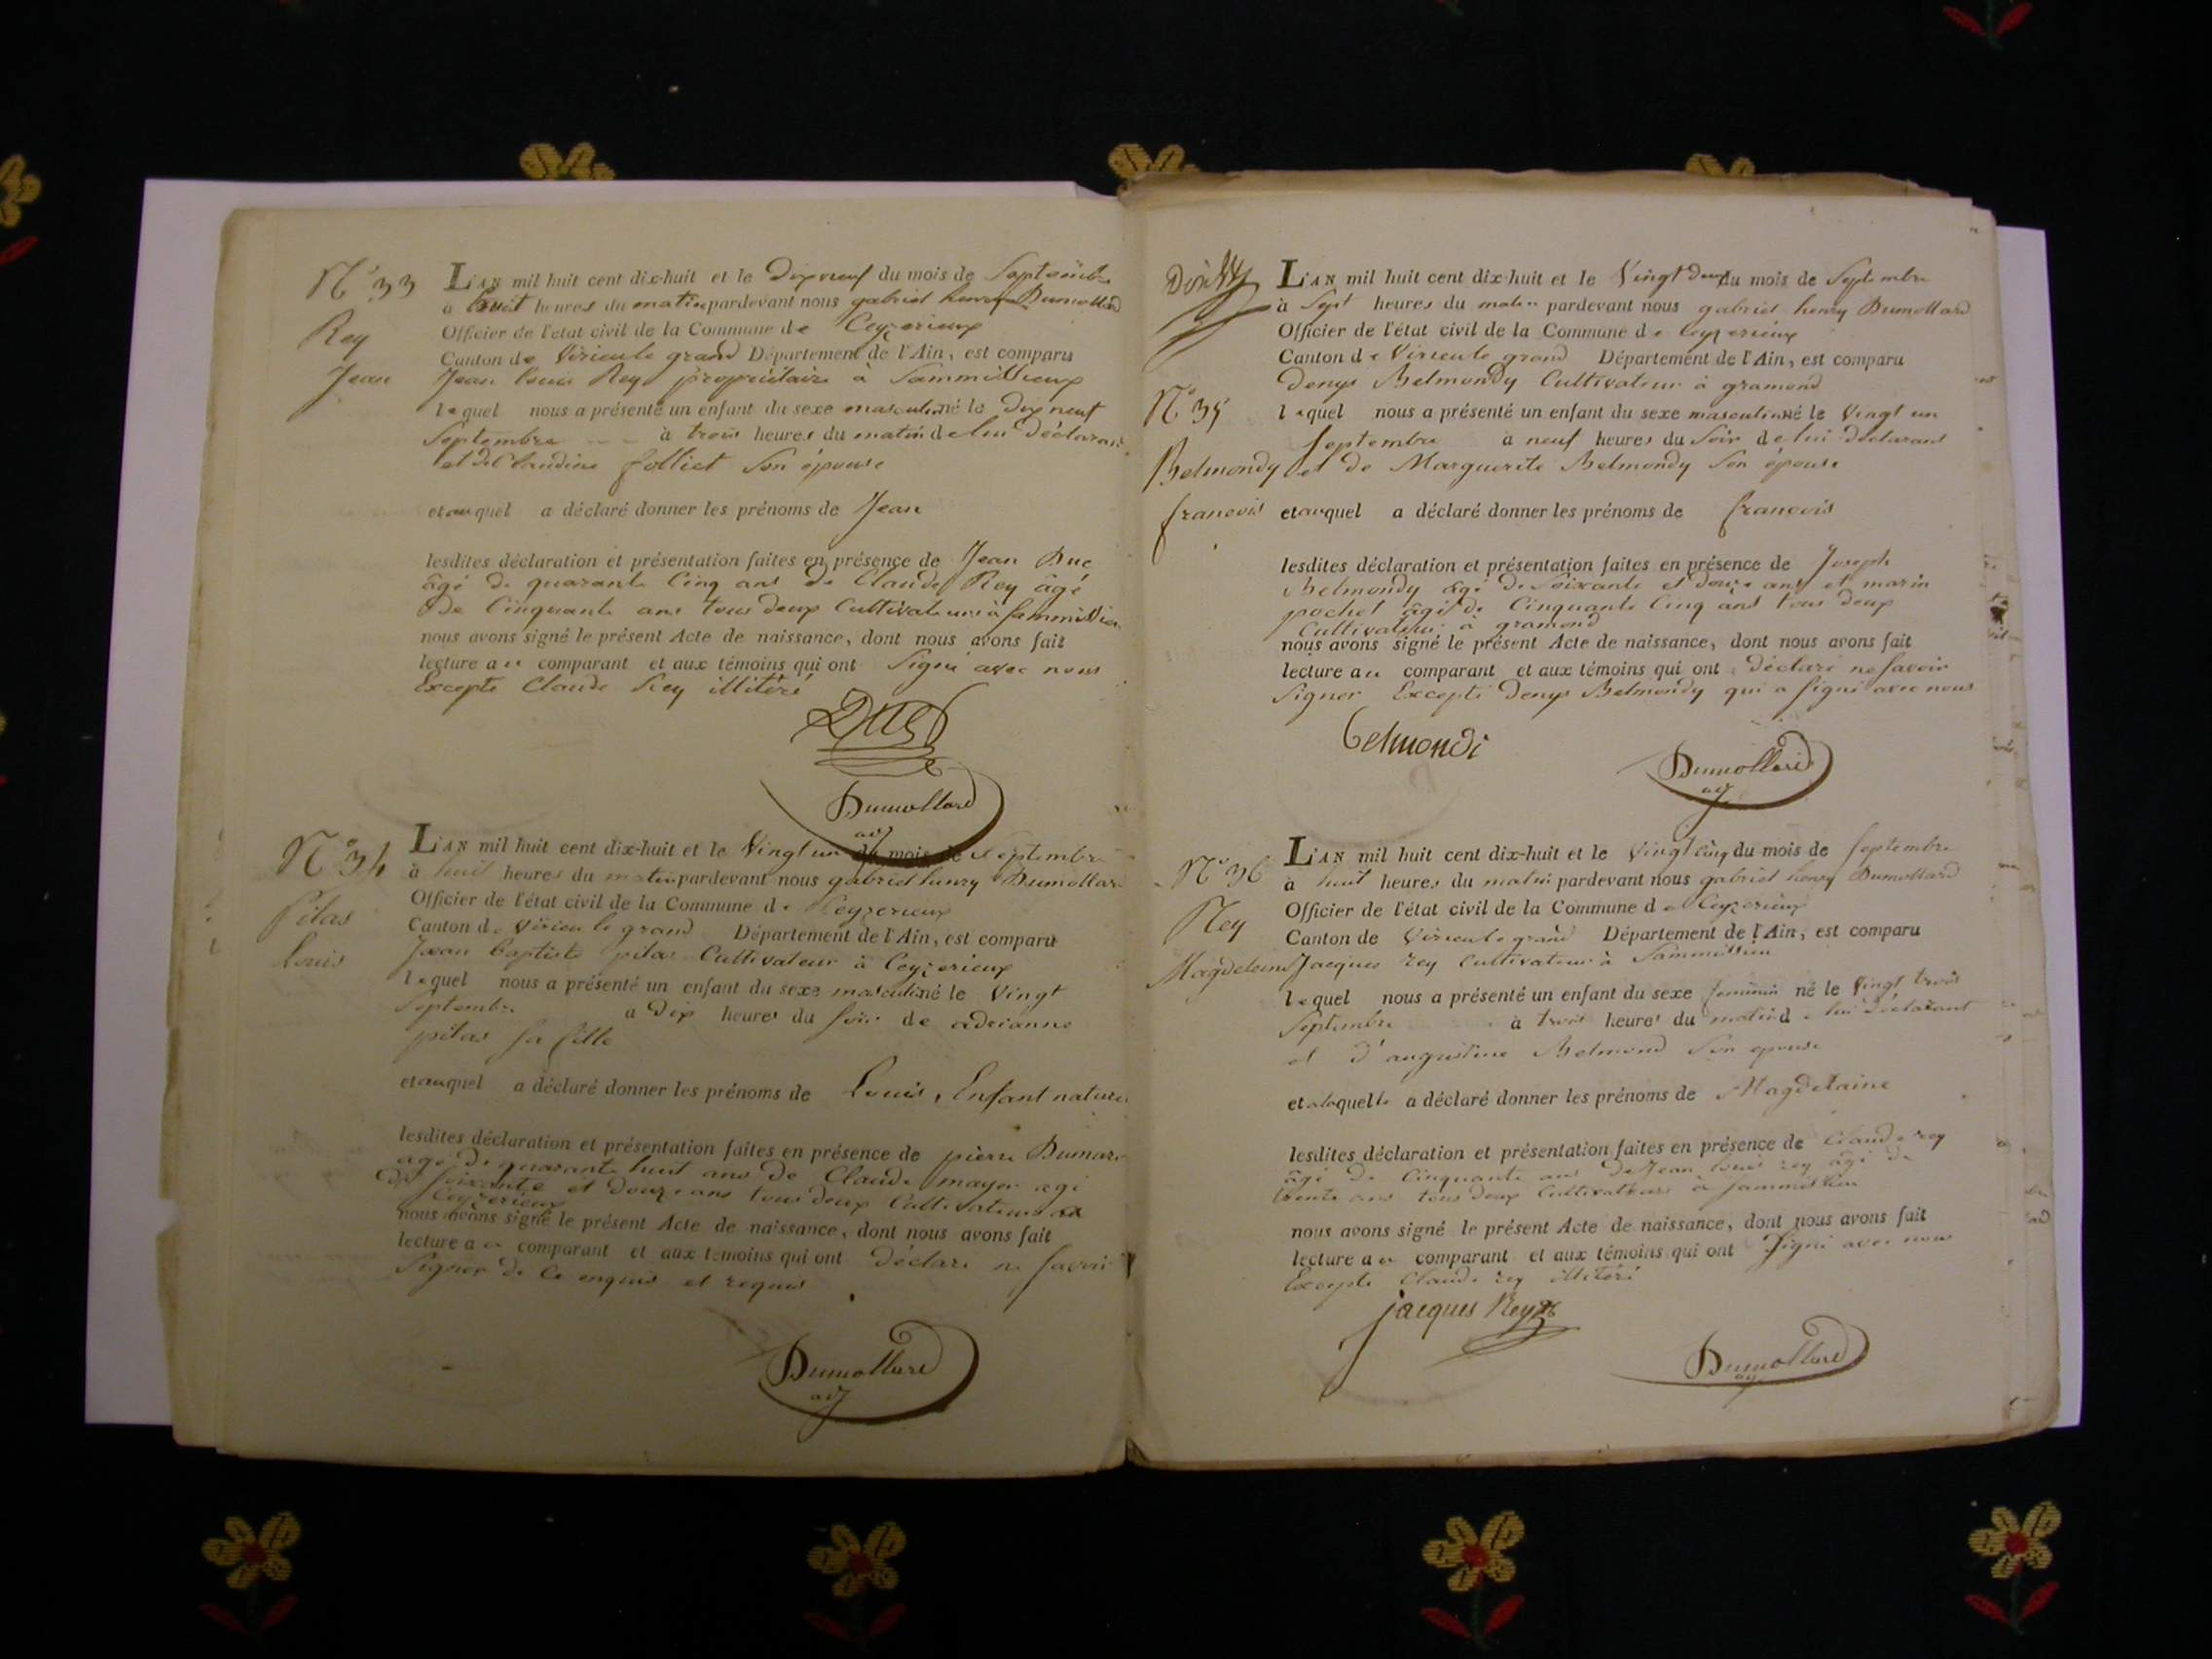 N° 33
Rey
Jean
L'AN mil huit cent dix-huit et le Dix neuf du mois de Septembre
à huit heures du matin pardevant nous gabriel henry Dumollard
Officier de l'état civil de la Commune de Ceyzerieux
Canton de Virieu le grand Département de l'Ain, est comparu
Jean louis Rey propriétaire à Sammissieux
lequel nous a présenté un enfant du sexe masculin né le Dix neuf
Septembre à trois heures du matin de lui Déclarant
et de Claudine folliet Son épouse
et auquel a déclaré donner les prénoms de Jean
lesdites déclaration et présentation faites en présence de Jean Duc
âgé de quarante Cinq ans de Claude Rey âgé
De Cinquante ans tous deux Cultivateurs à Sammissieu
nous avons signé le présent Acte de naissance, dont nous avons fait
lecture au comparant et aux témoins qui ont Signé avec nous
Excepté Claude Rey illitéré
Duc
Dumollard
adj
N° 34
Pilas
Louis
L'AN mil huit cent dix-huit et le Vingt un du mois de Septembre
à huit heures du matin pardevant nous gabriel henry Dumollard
Officier de l'état civil de la Commune de Ceyzerieux
Canton de Virieu le grand Département de l'Ain, est comparu
Jean baptiste pilas Cultivateur à Ceyzerieux
lequel nous a présenté un enfant du sexe masculin né le Vingt
Septembre à Dix heures du Soir de adrianne
pilas Sa fille
et auquel a déclaré donner les prénoms de Louis, Enfant naturel
lesdites déclaration et présentation faites en présence de pierre
agé De quarante huit ans De Claude mayer agé
De Soixante et Douze ans tous deux Cultivateurs
Ceyzerieux
nous avons signé le présent Acte de naissance, dont nous avons fait
lecture au comparant et aux témoins qui ont Déclaré ne Savoir
Signer De Ce enquis et requis
Dumollard
adj
N° 35
Belmondy
francois
L'AN mil huit cent dix-huit et le Vingt Deux du mois de Septembre
à Sept heures du matin pardevant nous gabriel henry Dumollard
Officier de l'état civil de la Commune de Ceyzerieux
Canton de Virieu le grand Département de l'Ain, est comparu
Denys Belmondy Cultivateur à gramond
lequel nous a présenté un enfant du sexe masculin né le Vingt un
Septembre à neuf heures du Soir de lui déclarant
et de Marguerite Belmondy Son épouse
et auquel a déclaré donner les prénoms de francois
lesdites déclaration et présentation faites en présence de Joseph
Belmondy âgé De Soixante et douze ans et marin
pochet âgé de Cinquante Cinq ans tous deux
Cultivateurs à gramond
nous avons signé le présent Acte de naissance, dont nous avons fait
lecture au comparant et aux témoins qui ont déclaré ne Savoir
Signer Excepté Denys Belmondy qui a Signé avec nous
belmondi
Dumollard
adj
N° 36
Rey
Magdeleine
L'AN mil huit cent dix-huit et le Vingt Cinq du mois de Septembre
à huit heures du matin pardevant nous gabriel henry Dumollard
Officier de l'état civil de la Commune de Ceyzerieux
Canton de Virieu le grand Département de l'Ain, est comparu
Jacques rey Cultivateur à Sammissieu
lequel nous a présenté un enfant du sexe feminin né le Vingt trois
Septembre à trois heures du matin de lui Déclarant
et d'augustine Belmond Son epouse
et a laquelle a déclaré donner les prénoms de Magdelaine
lesdites déclaration et présentation faites en présence de Claude rey
âgé De Cinquante ans De Jean louis rey âgé De
trente ans tous deux Cultivateurs à Sammissieu
nous avons signé le présent Acte de naissance, dont nous avons fait
lecture au comparant et aux témoins qui ont Signé avec nous
Excepté Claude rey illitéré
jacques Rey
Dumollard
adj